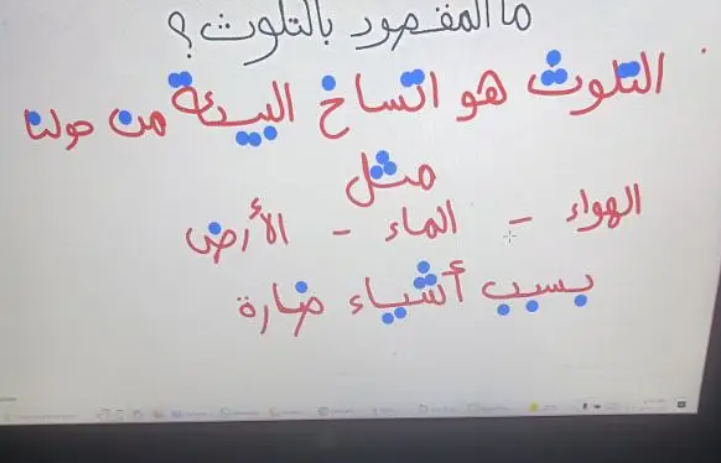 ما المقصود بالتلوث؟
التلوث هو اتساخ البيئة من حولنا
مثل
الهواء - الماء - الأرض
بسبب أشياء ضارة